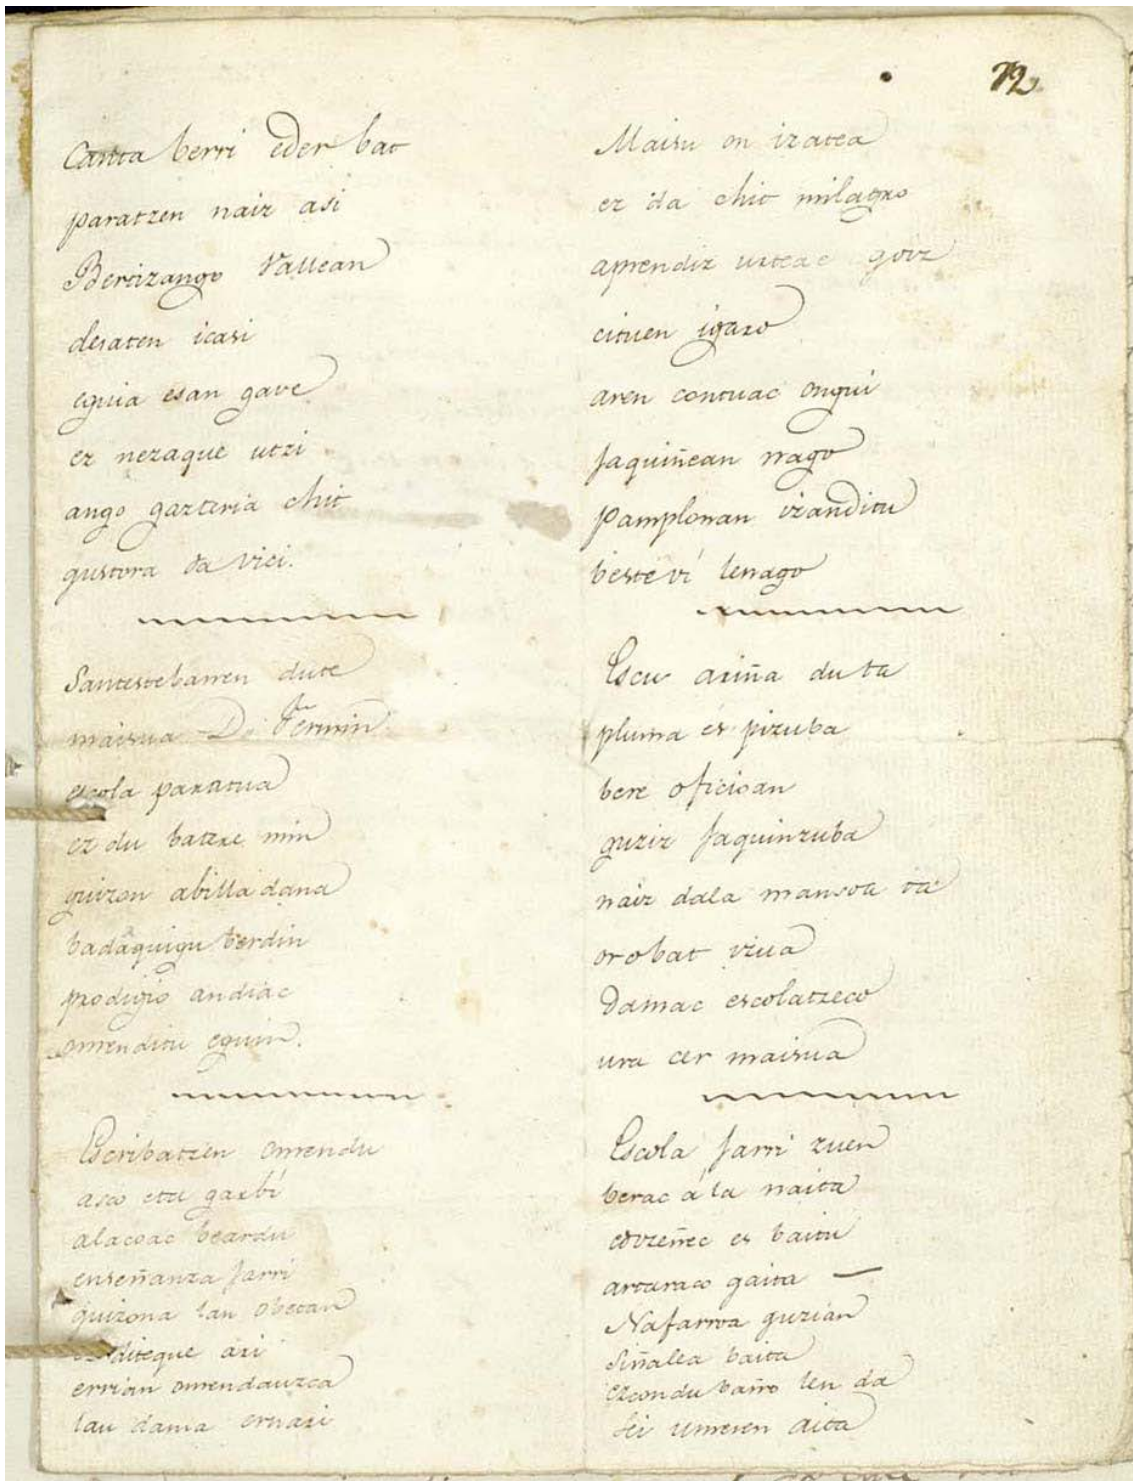 72
Canta berri eder bat
paratzen naiz asi
Bertizango Vallean
desaten icasi
eguia esan gave
ez nezaque utzi
ango gazteria chit
gustora da vici.
Santestebarren dute
maisua Dn. Fermin
escola paratua
ez du batere min
guizon abilla dana
badaquigu berdin
prodigio andiac
omenditu eguin.
Escribatzen omendu
asco eta garbi
alacoac beardu
enseñanza jarri
guizona lan obetan
diteque ari
errian omendauzca
lau dama ernari
Maisu on izatea
ez da chit milagro
aprendiz urteac goiz
cituen igaro
aren contuac ongui
jaquiñean nago
Pamplonan izanditu
beste ví lenago
Escu ariña du ta
pluma es pizuba
bere oficioan
guziz jaquinzuba
naiz dala mansoa ta
orobat viva
Damac escolatzeco
ura cer maisua
Escola jarri zuen
berac á la naita
es baitu
artaraco gaita —
Nafarroa guzian
siñalea baita
ezcondu baño len da
sei umeren aita